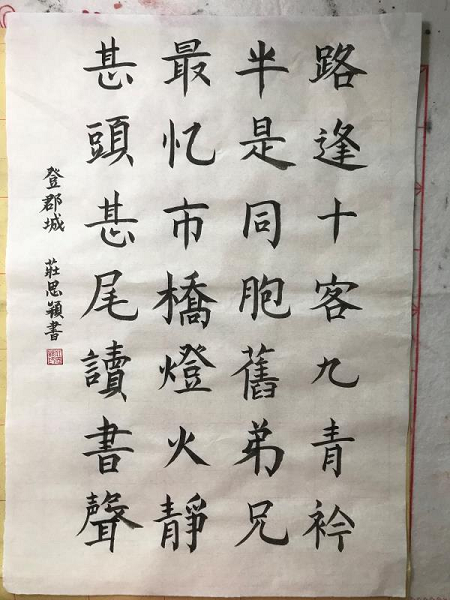 路逢十客九青衿
半是同胞舊弟兄
最忆市橋燈火靜
巷頭巷尾讀書聲
登郡城 莊思穎書